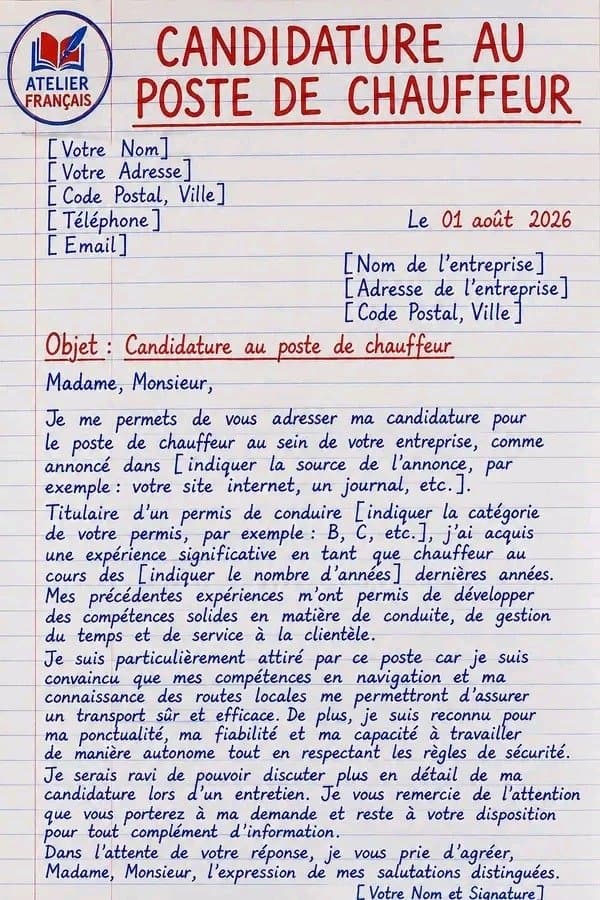 ATELIER
FRANÇAIS
CANDIDATURE AU
POSTE DE CHAUFFEUR
[Votre Nom]
[Votre Adresse]
[Code Postal, Ville]
[Téléphone]
Le 01 août 2026
[Email]
[Nom de l'entreprise]
[Adresse de l'entreprise]
[Code Postal, Ville]
Objet : Candidature au poste de chauffeur
Madame, Monsieur,
Je me permets de vous adresser ma candidature pour
le poste de chauffeur au sein de votre entreprise, comme
annoncé dans [indiquer la source de l'annonce, par
exemple : votre site internet, un journal, etc.].
Titulaire d'un permis de conduire [indiquer la catégorie
de votre permis, par exemple : B, C, etc.], j'ai acquis
une expérience significative en tant que chauffeur au
cours des [indiquer le nombre d'années] dernières années.
Mes précédentes expériences m'ont permis de développer
des compétences solides en matière de conduite, de gestion
du temps et de service à la clientèle.
Je suis particulièrement attiré par ce poste car je suis
convaincu que mes compétences en navigation et ma
connaissance des routes locales me permettront d'assurer
un transport sûr et efficace. De plus, je suis reconnu pour
ma ponctualité, ma fiabilité et ma capacité à travailler
de manière autonome tout en respectant les règles de sécurité.
Je serais ravi de pouvoir discuter plus en détail de ma
candidature lors d'un entretien. Je vous remercie de l'attention
que vous porterez à ma demande et reste à votre disposition
pour tout complément d'information.
Dans l'attente de votre réponse, je vous prie d'agréer,
Madame, Monsieur, l'expression de mes salutations distinguées.
[Votre Nom et Signature]